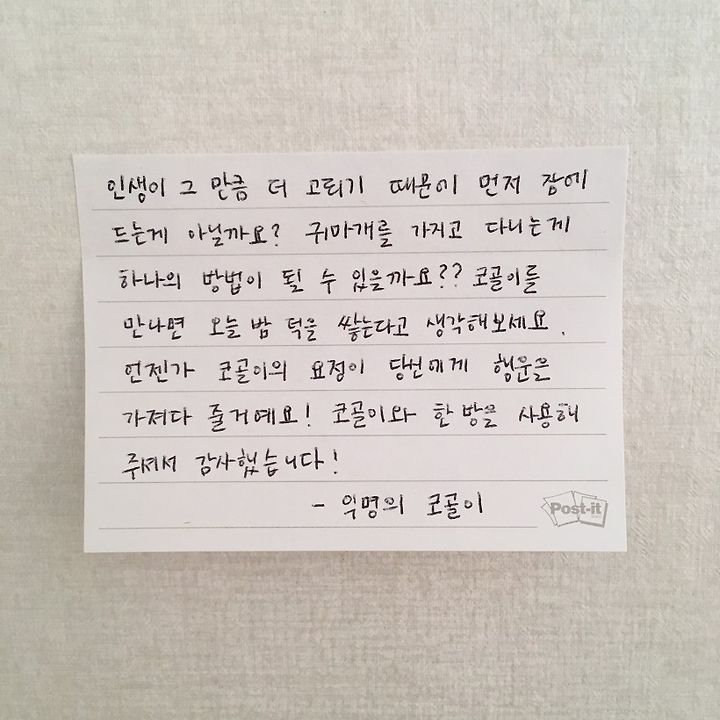 인생이 그 만큼 더 고되기 때문에 먼저 잠에
드는게 아닐까요? 귀마개를 가지고 다니는게
하나의 방법이 될 수 있을까요?? 코골이를
만나면 오늘 밤 덕을 쌓는다고 생각해보세요.
언젠가 코골이의 요정이 당신에게 행운을
가져다 줄거예요! 코골이와 한 방을 사용해
주셔서 감사했습니다!
- 익명의 코골이
Post-it